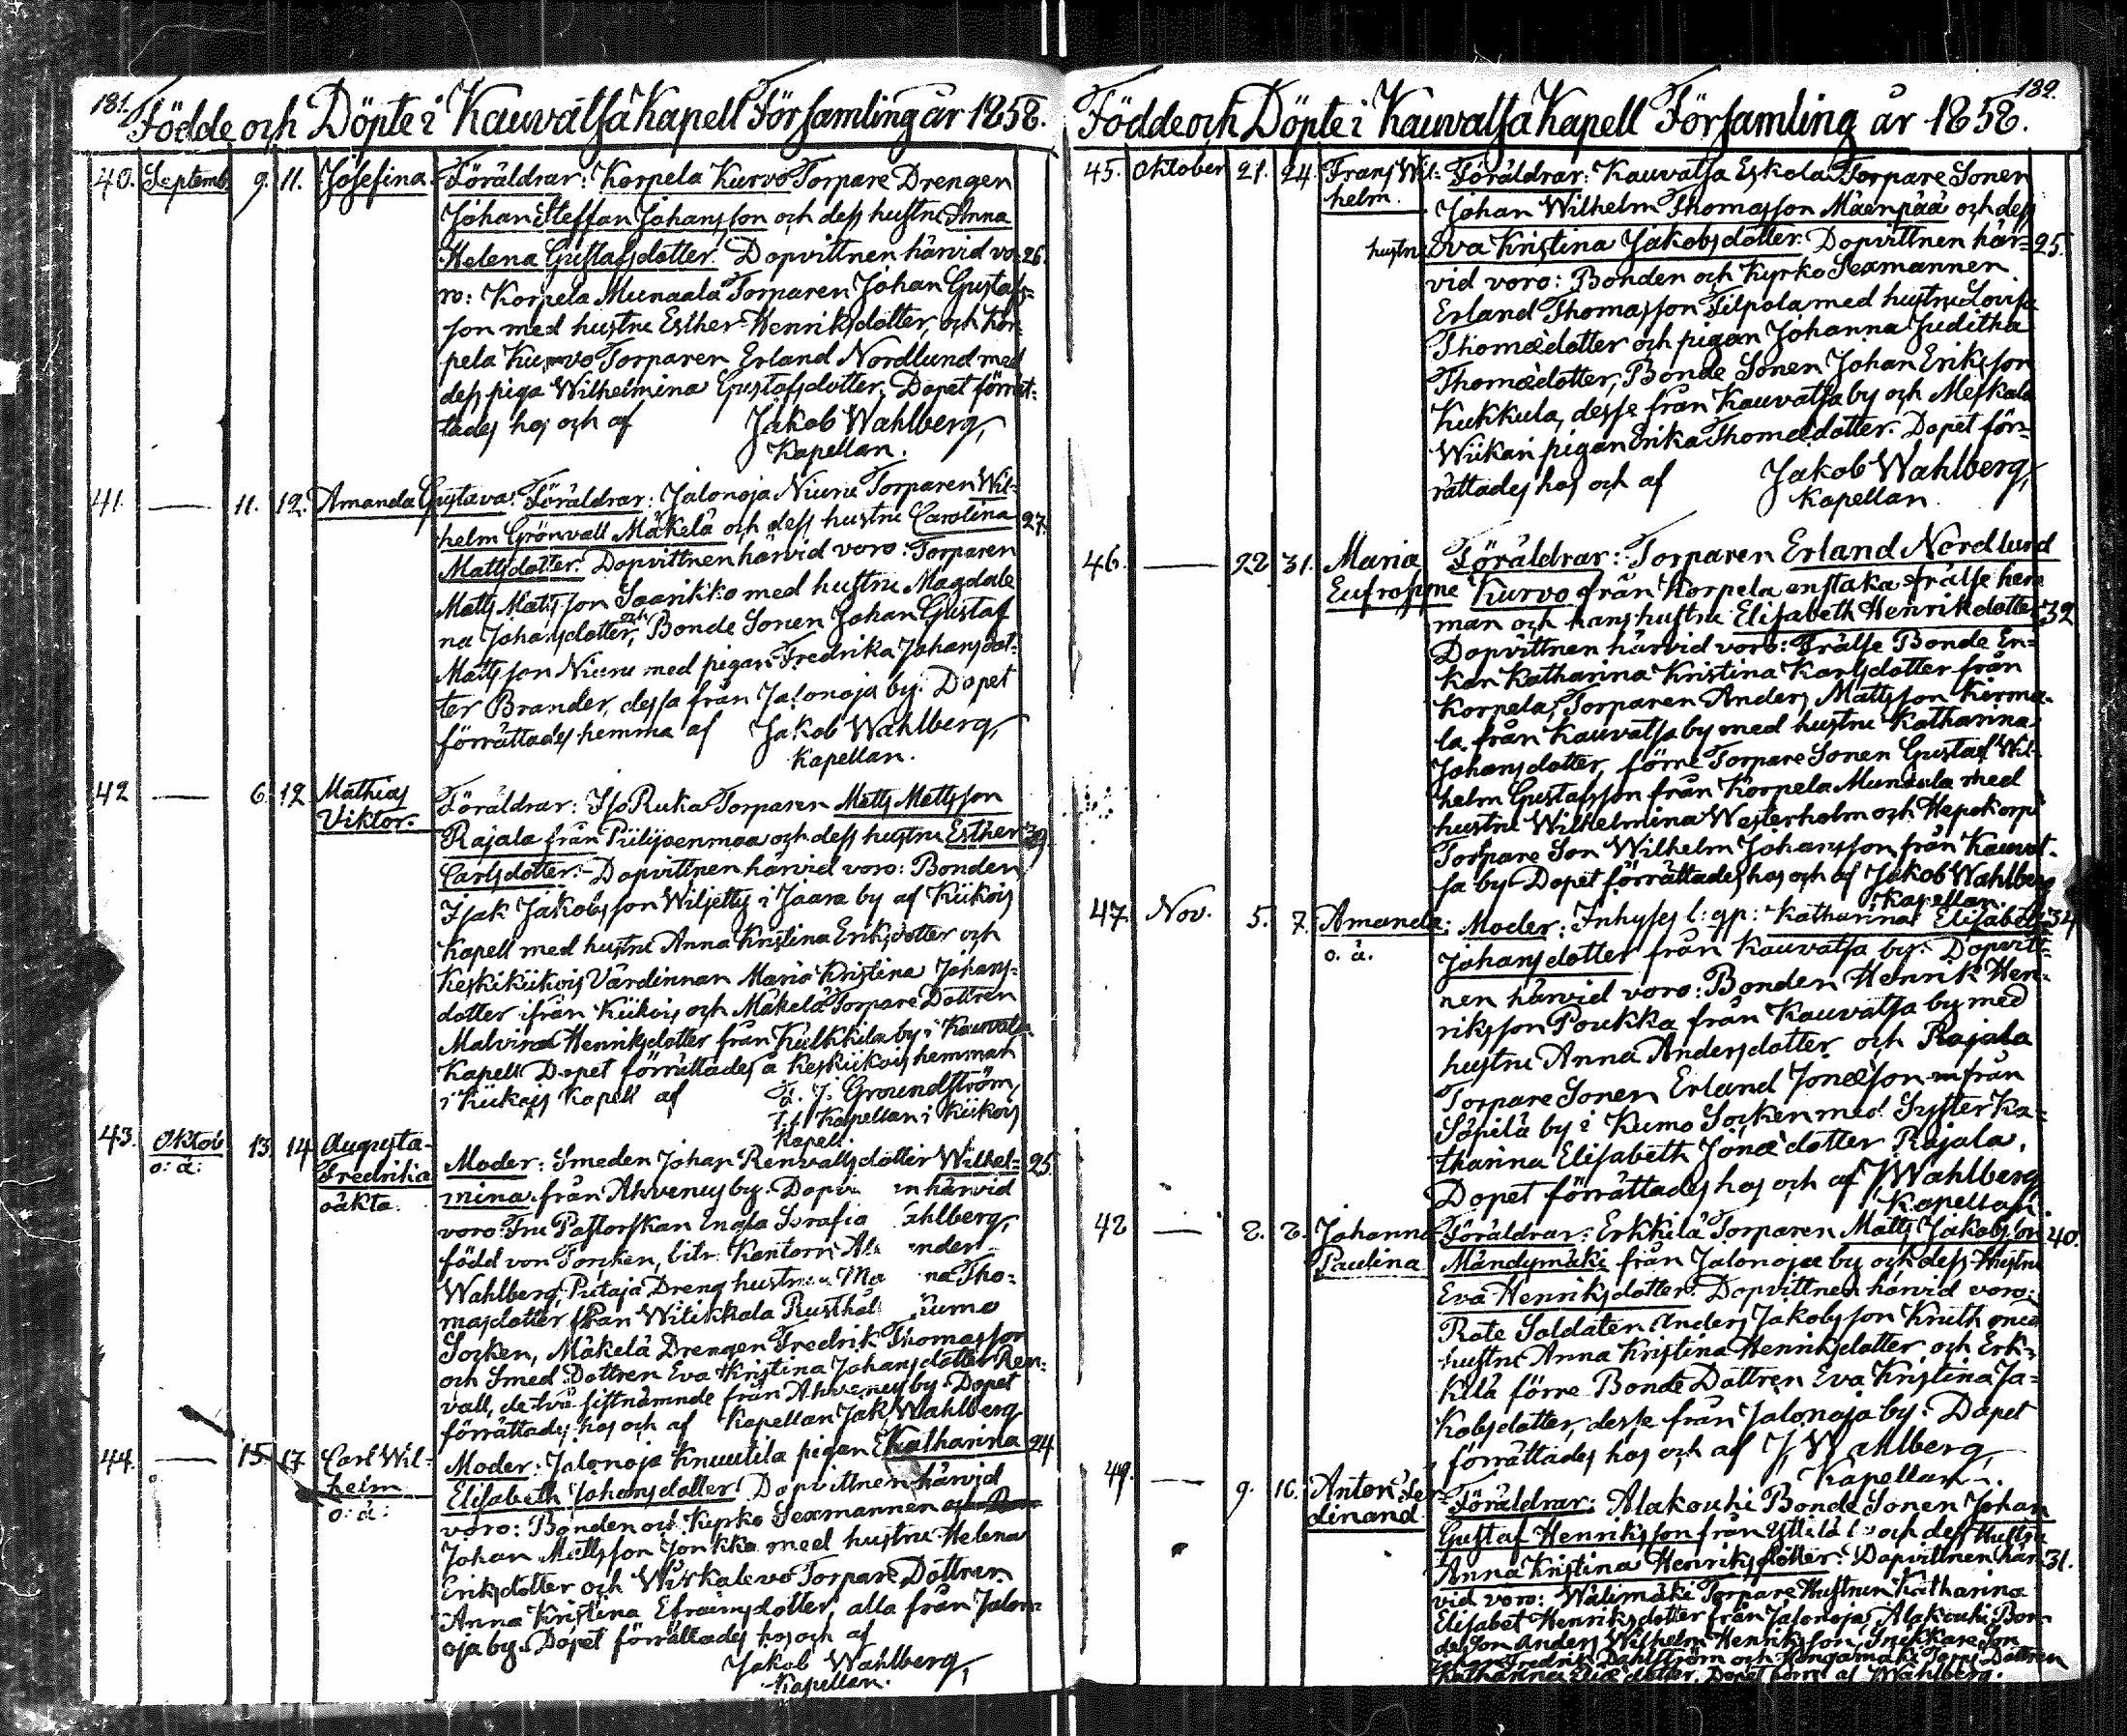 181.
Födde och Döpte i Kauvatsa Kapell Församling år 1858.
40. Septemb. 9. 11. Josefina. Föräldrar: Korpela Kurvo Torpare Drengen
Johan Steffan Johansson och dess hustru Anna
Helena Gustafsdotter. Dopvittnen härvid vo- 26.
ro: Korpela Munaala Torparen Johan Gustafs-
son med hustru Esther Henriksdotter, och Kor-
pela Kurvo Torparen Erland Nordlund med
dess piga Wilhelmina Gustafsdotter. Dopet förrät-
tades hos och af Jakob Wahlberg,
Kapellan.
41. — 11. 12. Amanda Gustava. Föräldrar: Jalonoja Niuru Torparen Wil-
helm Grönvall Mäkelä och dess hustru Carolina 27.
Mattsdotter. Dopvittnen härvid voro: Torparen
Matts Matsson Saarikko med hustru Magdale
na Johansdotter, och Bonde Sonen Johan Gustaf
Mattsson Niuru med pigan Fredrika Johansdot-
ter Brander, dessa från Jalonoja by. Dopet
förrättades hemma af Jakob Wahlberg,
Kapellan.
42 — 6. 12 Mathias Föräldrar: Iso Ruka Torparen Matts Mattsson
Viktor. Rajala från Piilijoenmaa och dess hustru Esther 39.
Carlsdotter. Dopvittnen härvid voro: Bonden
Isak Jakobsson Wiljetty i Jaara by af Kiikois
Kapell med hustru Anna Kristina Eriksdotter och
Keskikiikois Värdinnan Maria Kristina Johans-
dotter ifrån Kiikois och Mäkelä Torpare Dottren
Malvina Henriksdotter från Kulkkila by i Kauvatsa
Kapell. Dopet förrättades å Keskikiikois hemman
i Kiikois Kapell af F. J. Groundström,
T.f. Kapellan i Kiikois
Kapell.
43. Oktob. 13. 14 Augusta Moder: Smeden Johan Renvalls dotter Wilhel- 25
o: ä: Fredrika mina från Ahvenus by. Dopvi n härvid
oäkta. voro: Fru Pastorskan Engla Serafia ahlberg,
född von Torcken, bitr. Kantorn Ale ander
Wahlberg, Putaja Dreng hustrun Ma na Tho-
masdotter från Witikkala Rusthåll Kumo
Socken, Mäkelä Drengen Fredrik Thomasson
och Smed Dottren Eva Kristina Johansdotter Ren-
vall, de två sistnämnde från Ahvenus by. Dopet
förrättades hos och af Kapellan Jak. Wahlberg.
44. — 15. 17 Carl Wil- Moder: Jalonoja Knuutila pigan Katharina 24
helm Elisabeth Johansdotter. Dopvittnen härvid
o: ä: voro: Bonden och Kyrko Sexmannen
Johan Mattsson Jonkka med hustru Helena
Eriksdotter och Wirkalevo Torpare Dottren
Anna Kristina Efraimsdotter, alla från Jalon-
oja by. Dopet förrättades hos och af
Jakob Wahlberg,
Kapellan.
182.
Födde och Döpte i Kauvatsa Kapell Församling år 1858.
45. Oktober 21. 24. Frans Wil- Föräldrar: Kauvatsa Eskola Torpare Sonen
helm. Johan Wilhelm Thomasson Mäenpää och dess
hustru Eva Kristina Jakobsdotter. Dopvittnen här- 25.
vid voro: Bonden och Kyrko Sexmannen
Erland Thomasson Filpola med hustru Lovisa
Thomædotter och pigan Johanna Juditha
Thomædotter, Bonde Sonen Johan Eriksson
Kukkula, desse från Kauvatsa by och Meskala
Wiikari pigan Erika Thomædotter. Dopet för-
rättades hos och af Jakob Wahlberg,
Kapellan.
46. — 22 31. Maria Föräldrar: Torparen Erland Nordlund
Eufrosyne Kurvo från Korpela enstaka frälse hem
man och hans hustru Elisabeth Henriksdotter 32
Dopvittnen härvid voro: Frälse Bonde En-
kan Katharina Kristina Karlsdotter från
Korpela, Torparen Anders Mattsson Kirma-
la från Kauvatsa by med hustru Katharina
Johansdotter, förre Torpare Sonen Gustaf Wil-
helm Gustafsson från Korpela Munaala med
hustru Wilhelmina Westerholm och Hepokorpi
Torpare Son Wilhelm Johansson från Kauvat-
sa by. Dopet förrättades hos och af Jakob Wahlberg
Kapellan.
47. Nov. 5. 7. Amanda: Moder: Inhyses l: qp: Katharina Elisabeth 34
o. ä. Johansdotter från Kauvatsa by. Dopvitt-
nen härvid voro: Bonden Henrik Hen-
riksson Poukka från Kauvatsa by med
hustru Anna Andersdotter och Rajala
Torpare Sonen Erland Jonæson från
Söpilä by i Kumo Socken med Syster Ka-
tharina Elisabeth Jonædotter Rajala.
Dopet förrättades hos och af J. Wahlberg
Kapellan.
48 — 8. 8. Johanna Föräldrar: Erkkilä Torparen Matts Jakobsson 40.
Paulina Mändymäki från Jalonoja by och dess Hustru
Eva Henriksdotter. Dopvittnen härvid voro:
Rote Soldaten Anders Jakobsson Knuth med
hustru Anna Kristina Henriksdotter och Erk-
kilä förre Bonde Dottren Eva Kristina Ja-
kobsdotter, desse från Jalonoja by. Dopet
förrättades hos och af J. Wahlberg,
Kapellan.
49. — 9. 16. Anton Fer- Föräldrar: Alakouhi Bonde Sonen Johan
dinand Gustaf Henriksson från Yttilä och dess Hustru
Anna Kristina Henriksdotter. Dopvittnen här- 31.
vid voro: Wälimäki Torpare Hustrun Katharina
Elisabet Henriksdotter från Jalonoja, Alakouhi Bon-
de Son Anders Wilhelm Henriksson, Snickare Son
Johan Fredrik Dahlström och Hongamäki Torp. Dottren
Katharina dotter. Dopet förr. af Wahlberg.